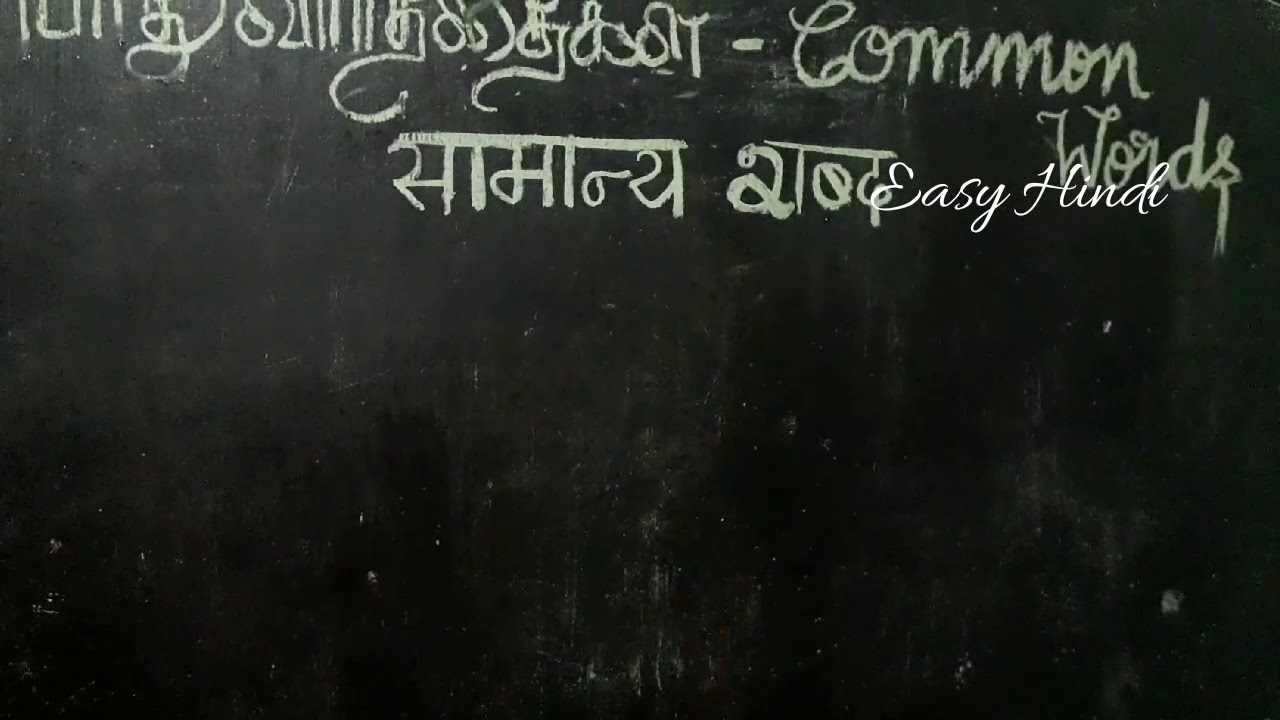 பொது வார்த்தைகள் - Common
Words
सामान्य शब्द
Easy Hindi